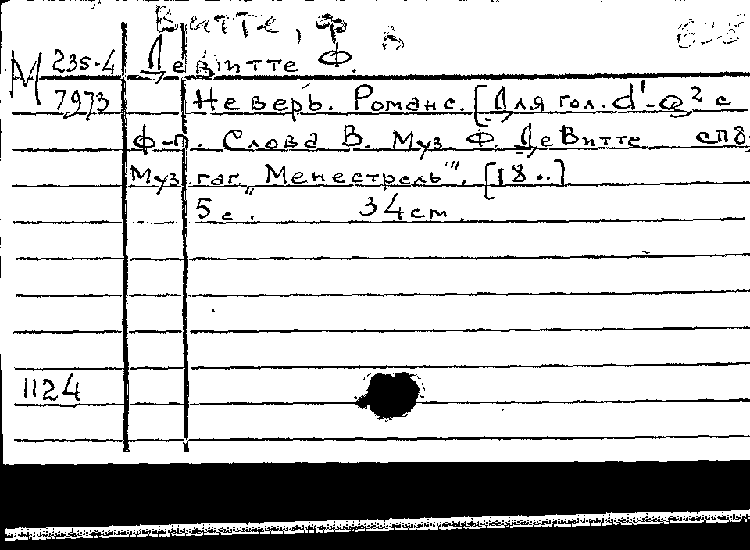 Витте, Ф
М 235-4 Де Витте Ф.
7973 Не верь. Романс. [Для гол. d¹-a² с
ф-п. Слова В. Муз Ф. Де Витте СПБ
Муз маг „Менестрель". [18..]
5 с. 34 cm
1124